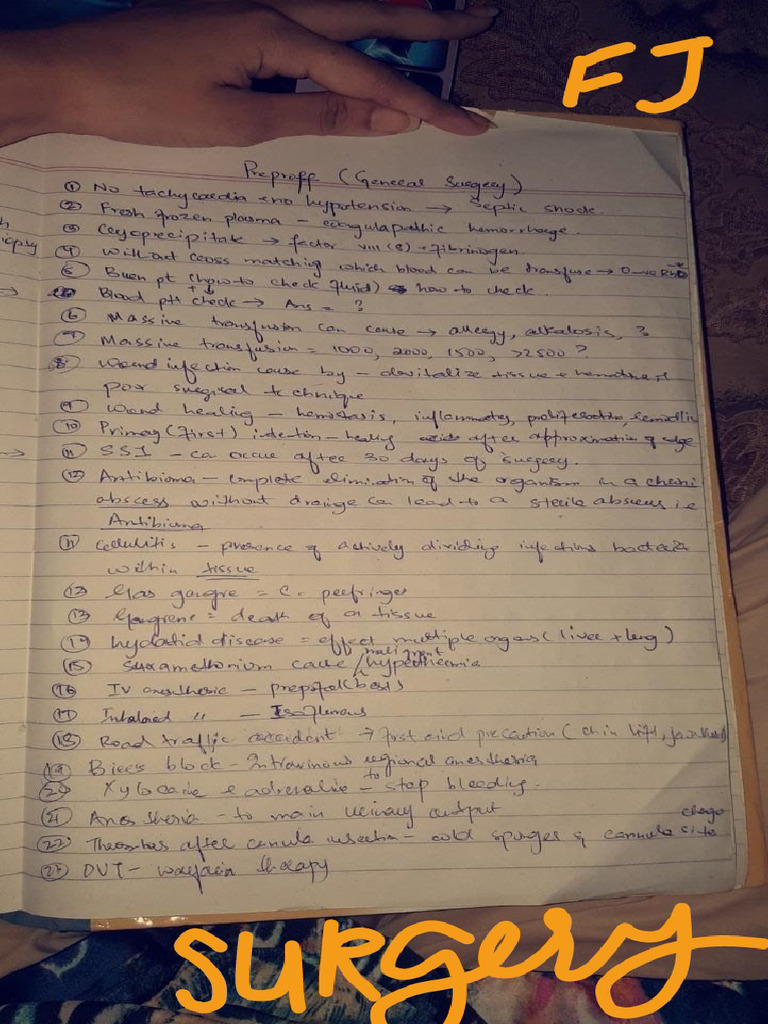 FJ
Preproff (General Surgery)
① No tachycardia + no hypotension → Septic shock.
② Fresh frozen plasma - coagulapathic hemorrhage.
③ Cryoprecipitate → factor VIII (8) + fibrinogen.
④ Without cross matching which blood can be transfuse → O-ve
⑤ Buen pt (how to check fluid) how to check.
Blood pH check → Ans = ?
⑥ Massive transfusion can cause → allergy, alkalosis, ?
⑦ Massive transfusion = 1000, 2000, 1500, >2500 ?
⑧ Wound infection cause by - devitalize tissue +
poor surgical technique
⑨ Wound healing - hemostasis, inflammatory, proliferation,
⑩ Primary (first) intention - healing after approximation of edge
⑪ SSI - can occure after 30 days of surgery.
⑫ Antibioma - complete elimination of the organism in a
abscess without drainge can lead to a sterile abscess i.e
Antibioma
⑪ Cellulitis - presence of actively dividing infections bacteria
within tissue
⑫ Gas gangre = C. perfringes
⑬ Gangrene = death of a tissue
⑭ hydatid disease = effect multiple organs (liver + lung)
⑮ Suxamethonium cause malignant hyperthermia
⑯ IV anesthesic - propofol (best)
⑰ Inhaloed " - Isoflurous
⑱ Road traffic accident → first aid precaution (chin lift,
⑲ Biers block - Intravinous regional anesthesia
Xylocaine e adrenaline - to stop bleeding.
㉑ Anesthesia - to main urinary output
㉒ after canula insertion - cold sponges & change cannula site
DVT - warfain therapy
SURGERY